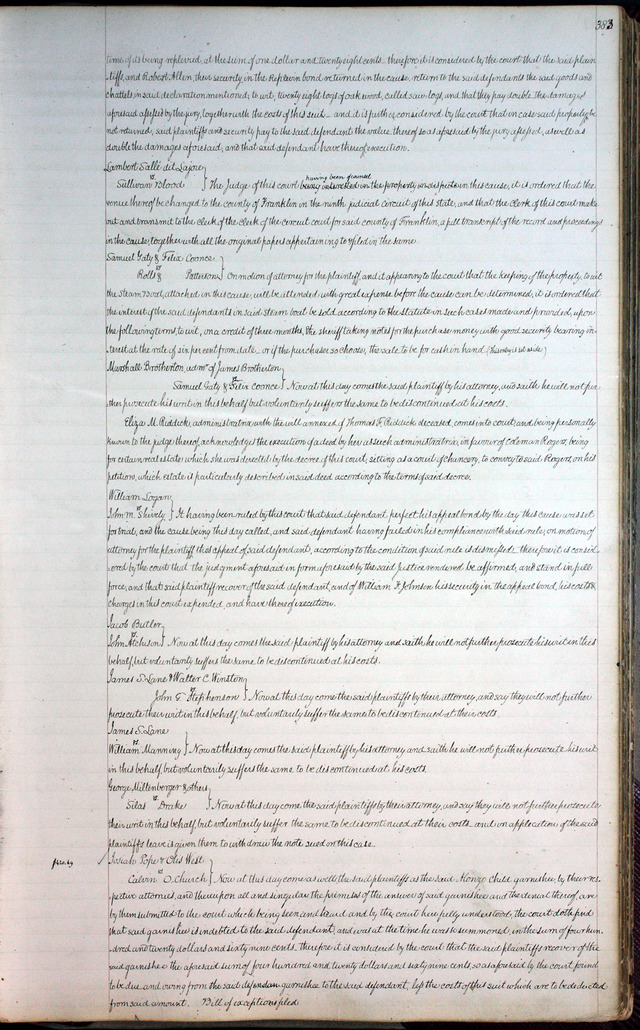 383
time of its being replevied, at the sum of one dollar and twenty eight cents. therefore it is considered by the court that the said plain
tiffs, and Robert Allen, their security in the Replevin bond returned in the cause, return to the said defendants the said goods and
chattels in said declaration mentioned; to wit, twenty eight logs of oak wood, called saw logs, and that they pay double the damages
aforesaid assessed by the jury, together with the costs of this suit – and it is further considered by the court that in case said property be
not returned, said plaintiffs and security pay to the said defendant the value thereof so as aforesaid by the jury assessed, as well as
double the damages aforesaid, and that said defendant have thereof execution.
Lambert Sallé dit Lajoie
vs
Sullivan Blood } The Judge of this court having been being interested in the property in dispute in this cause, it is ordered that the
venue thereof be changed to the county of Franklin in the ninth judicial circuit of this state, and that the clerk of this court make
out and transmit to the clerk of the clerk of the circuit court for said county of Franklin, a full transcript of the record and proceedings
in the cause, together with all the original papers appertaining to & filed in the same
Samuel Gaty & Felix Coonce
vs
Rolls & Patterson } On motion of attorney for the plaintiff, and it appearing to the court that the keeping of the property, to wit
the Steam Boat, attached in this cause, will be attended with great expense before the cause can be determined, it is ordered that
the interest of the said defendants in said steam boat be sold according to the statute in such cases made and provided, upon
the following terms, to wit, on a credit of three months, the sheriff taking notes for the purchase money with good security bearing in-
terest at the rate of six per cent from date – or if the purchaser so chooses, the sale to be for cash in hand (this entry is set aside)
Marshall Brotherton, admr. of James Brotherton
vs
Samuel Gaty & Felix Coonce } Now at this day comes the said plaintiff by his attorney, and saith he will not fur
ther prosecute his writ in this behalf but voluntarily suffers the same to be discontinued at his costs.
Eliza M. Riddick, administratrix with the will annexed of Thomas F. Riddick deceased, comes into court, and being personally
known to the judge thereof, acknowledges the execution of a deed by her as such administratrix, in favour of Coleman Rogers, being
for certain real estate which she was directed by the decree of this court, sitting as a court of chancery, to convey to said Rogers, on his
petition, which estate is particularly described in said deed according to the terms of said decree.
William Logan
vs
John M. Shively } It having been ruled by this court that said defendant perfect his appeal bond by the day this cause was set
for trial, and the cause being this day called, and said defendant having failed in his compliance with said rule, on motion of
attorney for the plaintiff this appeal of said defendant, according to the condition of said rule is dismissed. therefore it is consid
ered by the court that the judgment aforesaid in form aforesaid by the said Justice rendered be affirmed, and stand in full
force, and that said plaintiff recover of the said defendant, and of William F. Johnson his security in the appeal bond, his costs &
charges in this court expended and have thereof execution.
Jacob Butler
vs
John Atchison } Now at this day comes the said plaintiff by his attorney and saith he will not further prosecute his writ in this
behalf, but voluntarily suffers the same to be discontinued at his costs.
James S. Lane & Walter C. Winston
vs
John G. Stephenson } Now at this day come the said plaintiffs by their attorney, and say they will not further
prosecute their writ in this behalf, but voluntarily suffer the same to be discontinued at their costs.
James S. Lane
vs
William Manning } Now at this day comes the said plaintiff by his attorney and saith he will not further prosecute his writ
in this behalf but voluntarily suffers the same to be discontinued at his costs.
George Miltenberger & others
vs
Silas Drake } Now at this day come the said plaintiffs by their attorney, and say they will not further prosecute
their writ in this behalf, but voluntarily suffer the same to be discontinued at their costs – and on application of the said
plaintiffs leave is given them to withdraw the note sued on this case.
Josiah Pope & Otis West
vs
Calvin O. Church } Now at this day come as well the said plaintiffs as the said Alonzo Child, garnishee, by their res
pective attornies, and thereupon all and singular the premises of the answer of said garnishee and the denial thereof, are
by them submitted to the court which being seen and heard and by the court here fully understood, the court doth find
that said garnishee is indebted to the said defendant, and was at the time he was so summoned, in the sum of four hun
dred and twenty dollars and sixty nine cents. therefore it is considered by the court that the said plaintiffs recover of the
said garnishee the aforesaid sum of four hundred and twenty dollars and sixty nine cents, so as aforesaid by the court found
to be due and owing from the said defendan garnishee to the said defendant, less the costs of this suit which are to be deducted
from said amount. Bill of exceptions filed